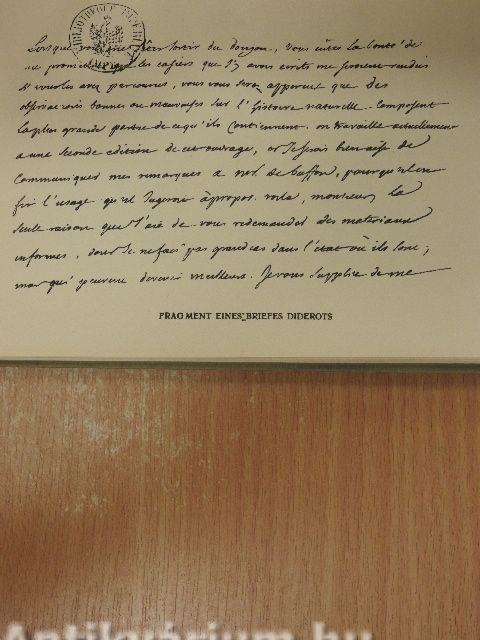 BIBLIOTHEQUE
Lorsque vous m'avez fait sortir du donjon, vous eutes la bonté de
me promettre que les cahiers que j'y avois ecrits me seroient rendus
si vous les avez parcourus, vous vous serez apperçut que des
observations bonnes ou mauvaises sur l'histoire naturelle composent
la plus grande partie de ce qu'ils contiennent. on travaille actuellement
a une seconde edition de cet ouvrage, et je serois bien aise de
communiquer mes remarques a mr. de buffon, pour qu'il en
fit l'usage qu'il jugeroit àpropos. voila, monsieur, la
seule raison que j'aie de vous redemander des materiaux
informes, dont je ne fais pas grand cas dans l'état où ils sont;
mais qui peuvent devenir meilleurs. Je vous supplie de me
FRAGMENT EINES BRIEFES DIDEROTS
Antikvárium.hu